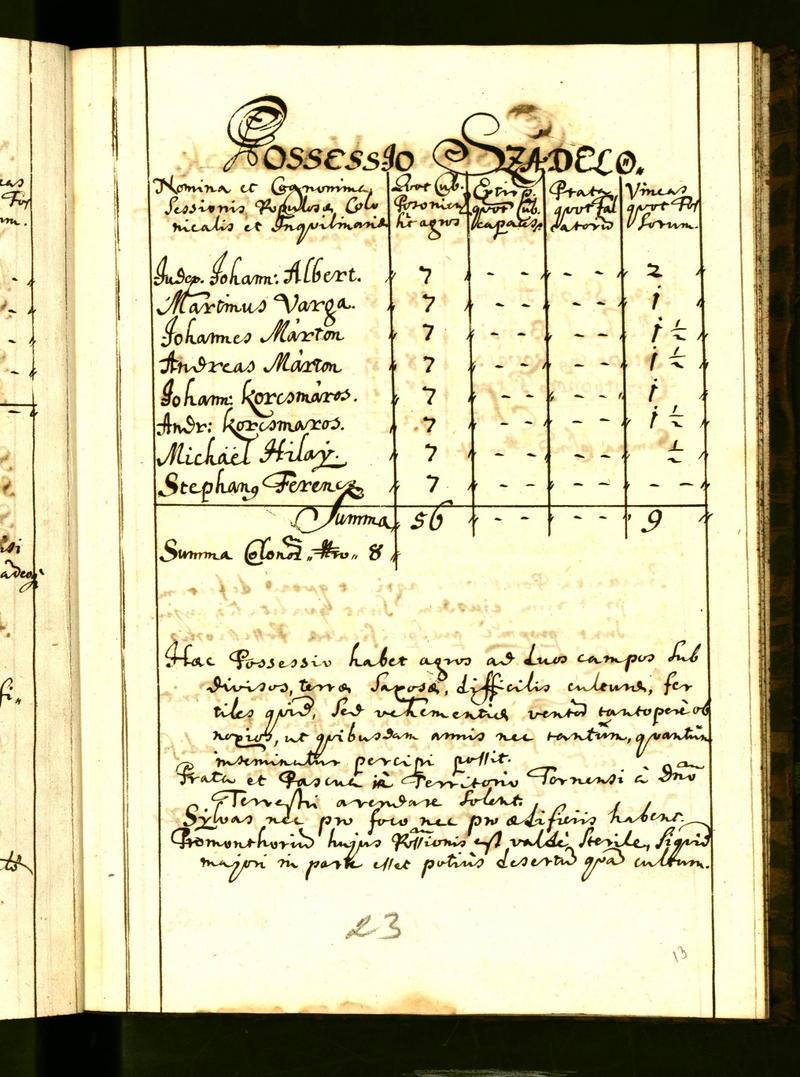 Possessio Szádelö.
Nomina et Cognomina Sessionis Populosæ Colonicalis et Inquilinariæ
Quot Cub. Posonien: hic agros
Extirp. quot Cub. capaces
Prata quot Falcatorũ
Vineas quot Fossorum.
Judex. Johann: Albert. 〃 7 〃 - - 〃 - - 〃 2 〃
Martinus Varga. 〃 7 〃 - - 〃 - - 〃 1 〃
Johannes Márton 〃 7 〃 - - 〃 - - 〃 1 ½ 〃
Andreas Márton 〃 7 〃 - - 〃 - - 〃 1 ½ 〃
Johann: Korcsmáros. 〃 7 〃 - - 〃 - - 〃 1 〃
Andr: Korcsmaros. 〃 7 〃 - - 〃 - - 〃 1 ½ 〃
Michaël Hilaÿ. 〃 7 〃 - - 〃 - - 〃 ½ 〃
Stephan9 Ferencz 〃 7 〃 - - 〃 - - 〃 - - 〃
Summa 〃 56 〃 - - 〃 - - 〃 9 〃
Summa Colonor 〃 Nro 〃 8 〃
Hæc Possessio habet agros ad duos campos sub
divisos, terræ saxosæ, difficilis culturæ, fer
tiles quid, sed vehementiæ ventor tantopere ob
noxios, ut quibusdam annis nec tantũm, quantũm
inseminatur percipi possit.
Prata et Pascua in Territorio Tornensi à Dno
Terrestri arendare solent.
Sylvas nec pro foco nec pro ædificiis habent.
Promonthoriũ hujus Possionis est valdè sterile, siquid
majori in parte esset potiùs desertũ quã cultum.
23
13